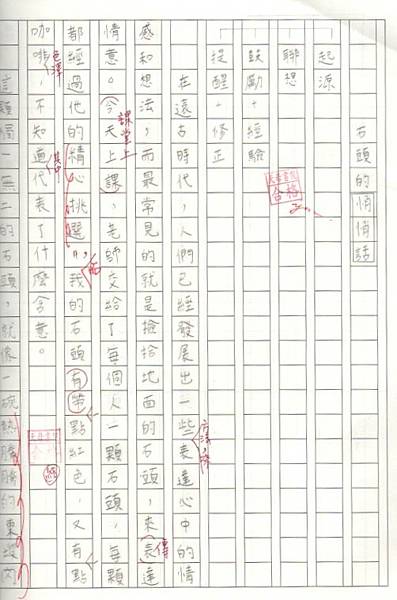 石頭的悄悄話
起源
聯想
鼓勵、經驗
提醒、修正
在遠古時代，人們已經發展出一些表達心中的情
感和想法，而最常見的就是撿拾地面的石頭，來表達
情意。今天上課，老師交給了每個人一顆石頭，每顆
都經過他的精心挑選，我的石頭有帶點紅色，又有點
咖啡，不知道代表了什麼含意。
這顆獨一無二的石頭，就像一碗熱騰騰的
合格
傳
課堂上
色澤
其中
合格